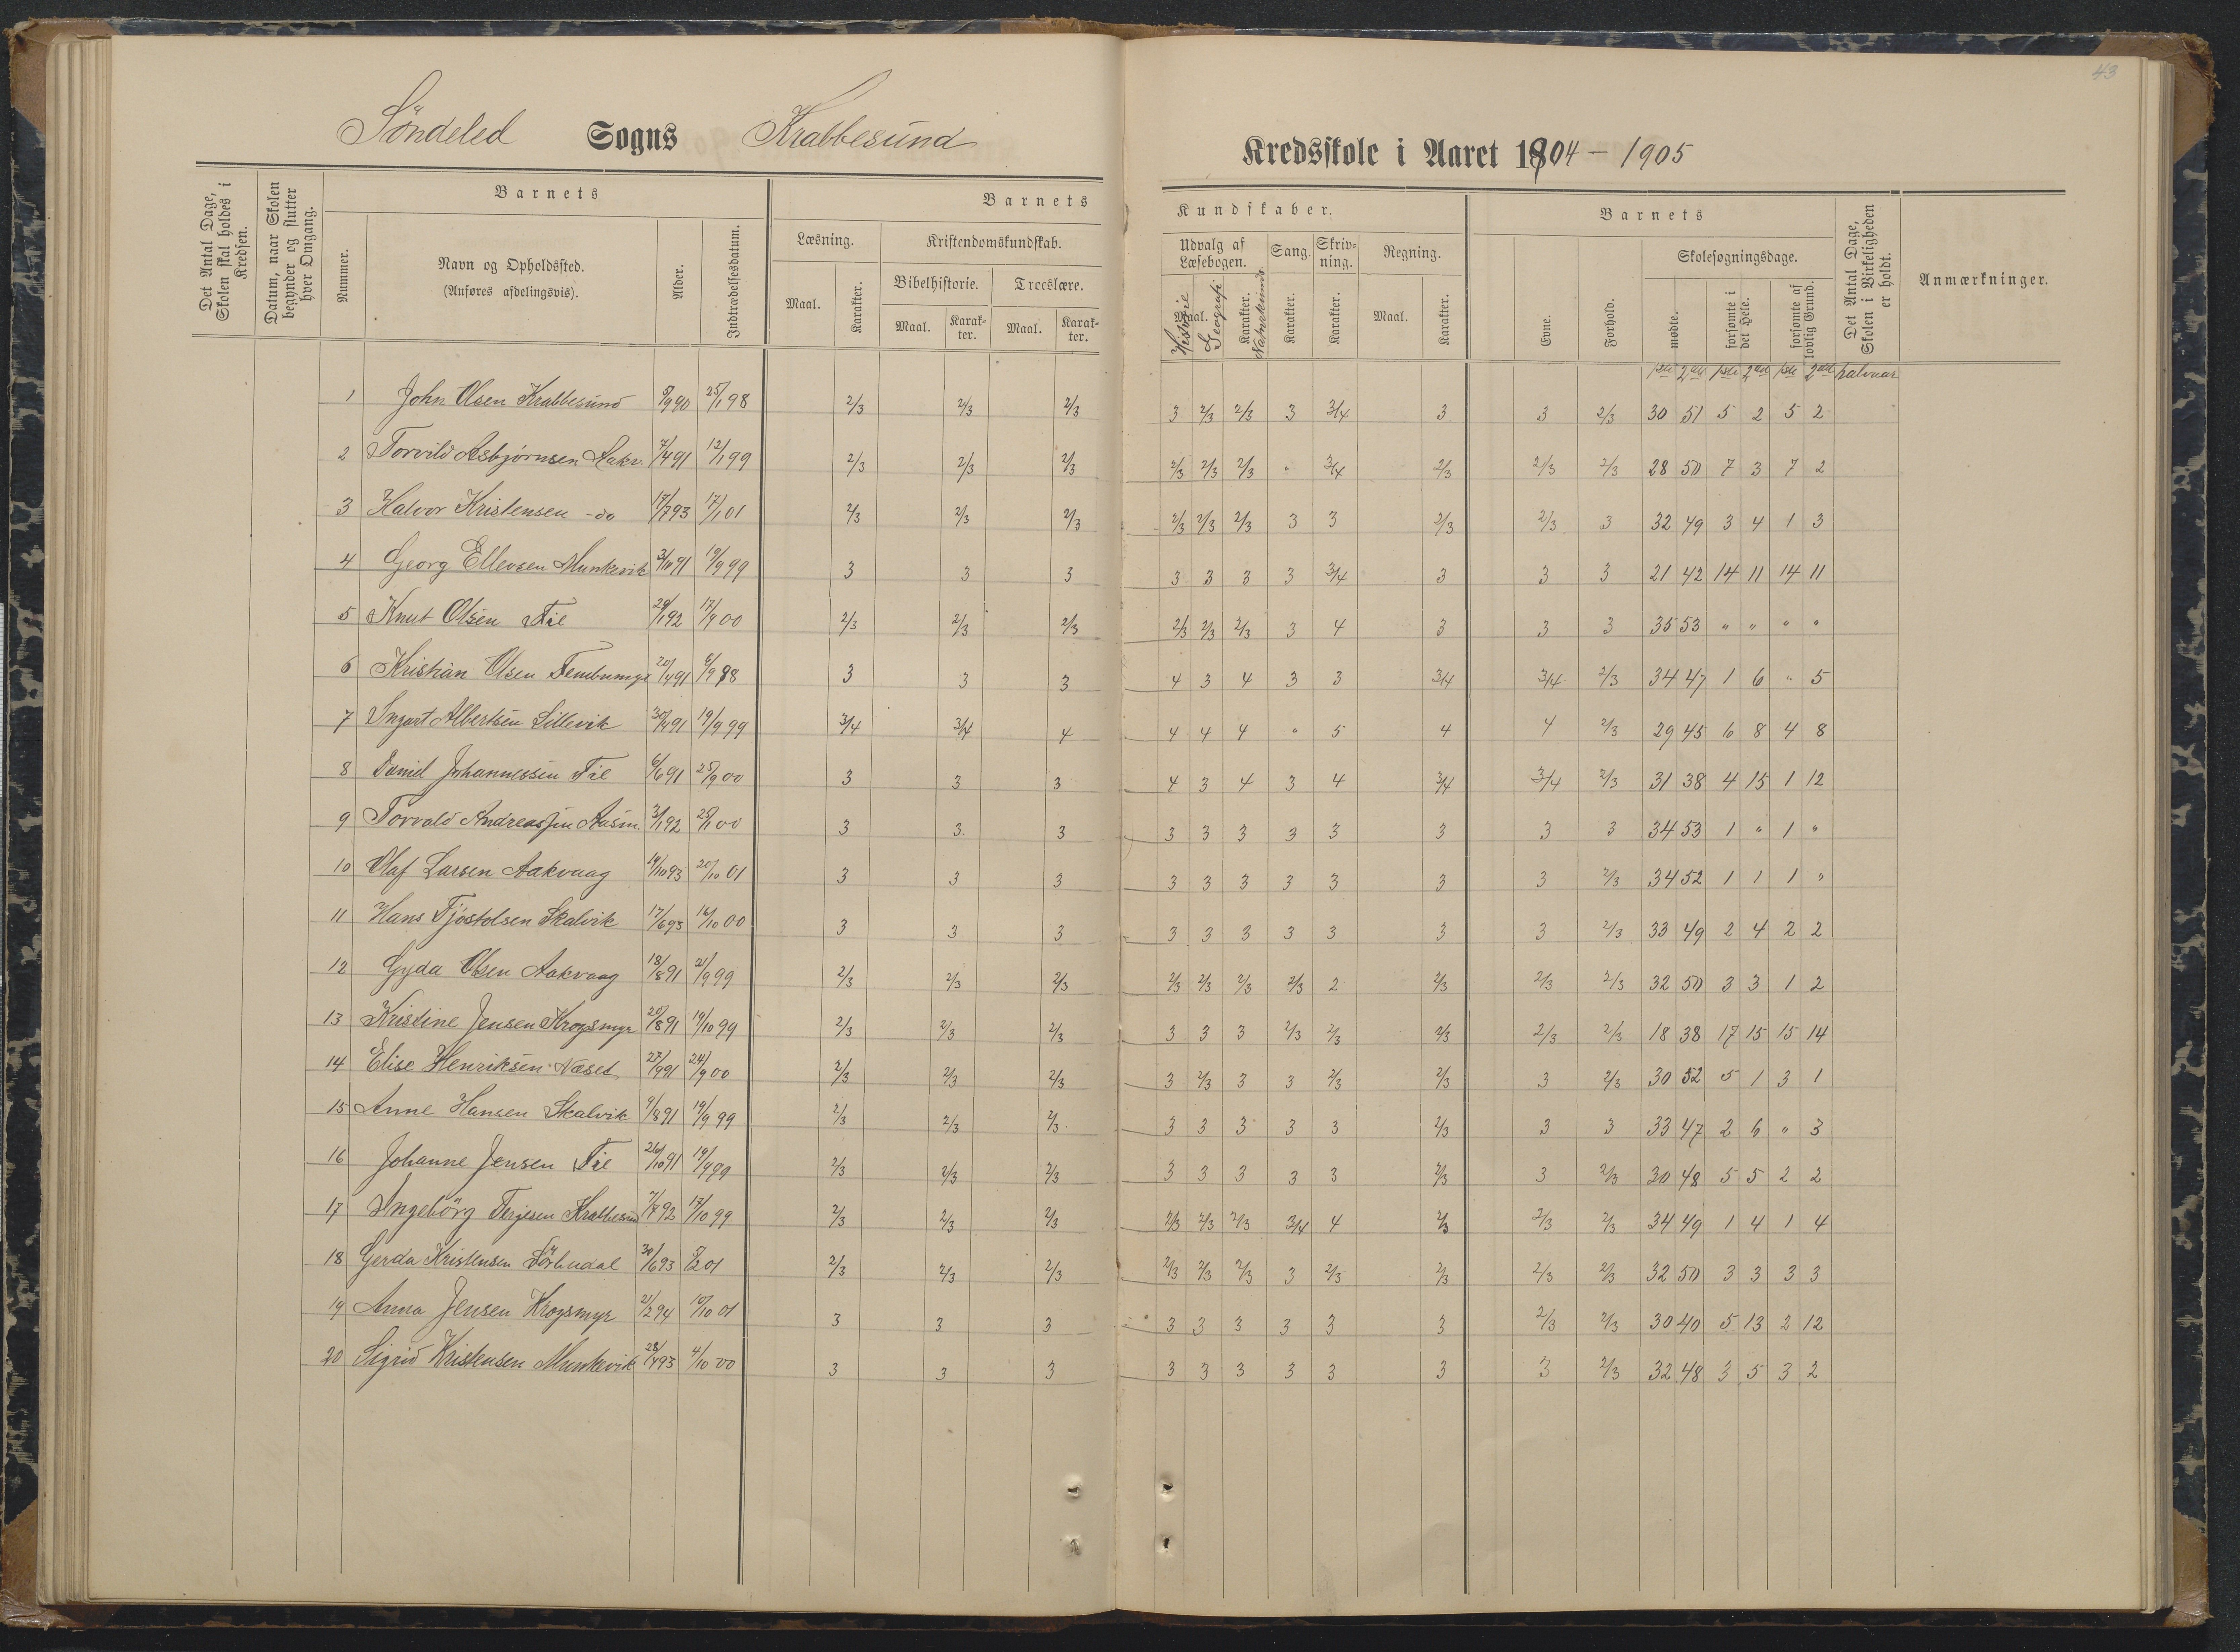 43
Söndeled Sogns Krabbesund Kredsskole i Aaret 1904 – 1905
Det Antal Dage, Skolen skal holdes i Kredsen.
Datum, naar Skolen begynder og slutter hver Omgang.
Barnets
Nummer.
Navn og Opholdssted.
(Anføres afdelingsvis).
Alder.
Indtrædelsesdatum.
Barnets Kundskaber.
Læsning. Kristendomskundskab.
Bibelhistorie. Troeslære.
Maal. Karakter. Maal. Karakter. Maal. Karakter.
Udvalg af Læsebogen. Sang. Skrivning. Regning.
Maal. Karakter. Karakter. Karakter. Maal. Karakter.
Historie Geografi Naturkund
Barnets
Evne. Forhold. Skolesøgningsdage.
mødte. forsømte i det Hele. forsømte af lovlig Grund.
Det Antal Dage, Skolen i Virkeligheden er holdt.
Anmærkninger.
1ste 2det 1ste 2det 1ste 2det halvaar
1 John Olsen Krabbesund 5/9 90 25/1 98 2/3 2/3 2/3 3 2/3 2/3 3 3/4 3 3 2/3 30 51 5 2 5 2
2 Torvild Asbjörnsen Aakv. 7/4 91 12/1 99 2/3 2/3 2/3 2/3 2/3 2/3 " 3/4 2/3 2/3 2/3 28 50 7 3 7 2
3 Halvor Kristensen -do 17/7 93 17/1 01 2/3 2/3 2/3 2/3 2/3 2/3 3 3 2/3 2/3 3 32 49 3 4 1 3
4 Georg Ellevsen Munkevik 3/10 91 19/9 99 3 3 3 3 3 3 3 3/4 3 3 3 21 42 14 11 14 11
5 Knut Olsen Fie 29/1 92 17/9 00 2/3 2/3 2/3 2/3 2/3 2/3 3 4 3 3 3 35 53 " " " "
6 Kristian Olsen 20/4 91 6/9 98 3 3 3 4 3 4 3 3 3/4 3/4 2/3 34 47 1 6 " 5
7 Ingvart Albertsen Lillevik 30/4 91 19/9 99 3/4 3/4 4 4 4 4 " 5 4 4 2/3 29 45 6 8 4 8
8 Daniel Johannessen Fie 6/6 91 25/9 00 3 3 3 4 3 4 3 4 3/4 3/4 2/3 31 38 4 15 1 12
9 Torvald Andreassen Aasm. 3/1 92 25/1 00 3 3 3 3 3 3 3 3 3 3 3 34 53 1 " 1 "
10 Olaf Larsen Aakvaag 19/10 93 20/10 01 3 3 3 3 3 3 3 3 3 3 2/3 34 52 1 1 1 "
11 Hans Tjöstolsen Skalvik 17/6 93 16/10 00 3 3 3 3 3 3 3 3 3 3 2/3 33 49 2 4 2 2
12 Gyda Olsen Aakvaag 18/8 91 21/9 99 2/3 2/3 2/3 2/3 2/3 2/3 2/3 2 2/3 2/3 2/3 32 50 3 3 1 2
13 Kristine Jensen Krogsmyr 20/8 91 19/10 99 2/3 2/3 2/3 3 3 3 2/3 2/3 2/3 2/3 2/3 18 38 17 15 15 14
14 Elise Henriksen Næset 27/9 91 24/9 00 2/3 2/3 2/3 3 2/3 3 3 2/3 2/3 3 2/3 30 52 5 1 3 1
15 Anne Hansen Skalvik 9/8 91 19/9 99 2/3 2/3 2/3 3 3 3 3 3 2/3 3 3 33 47 2 6 " 3
16 Johanne Jensen Fie 26/10 91 19/9 99 2/3 2/3 2/3 3 3 3 3 3 2/3 3 2/3 30 48 5 5 2 2
17 Ingebörg Terjesen Krabbesund 7/7 92 17/10 99 2/3 2/3 2/3 2/3 2/3 2/3 3/4 4 2/3 2/3 2/3 34 49 1 4 1 4
18 Gerda Kristensen Sörbudal 30/6 93 5/2 01 2/3 2/3 2/3 2/3 2/3 2/3 3 2/3 2/3 2/3 2/3 32 50 3 3 3 3
19 Anna Jensen Krogsmyr 21/2 94 10/10 01 3 3 3 3 3 3 3 3 3 2/3 2/3 30 40 5 13 2 12
20 Sigrid Kristensen Munkevik 28/4 93 4/10 00 3 3 3 3 3 3 3 3 3 3 2/3 32 48 3 5 3 2